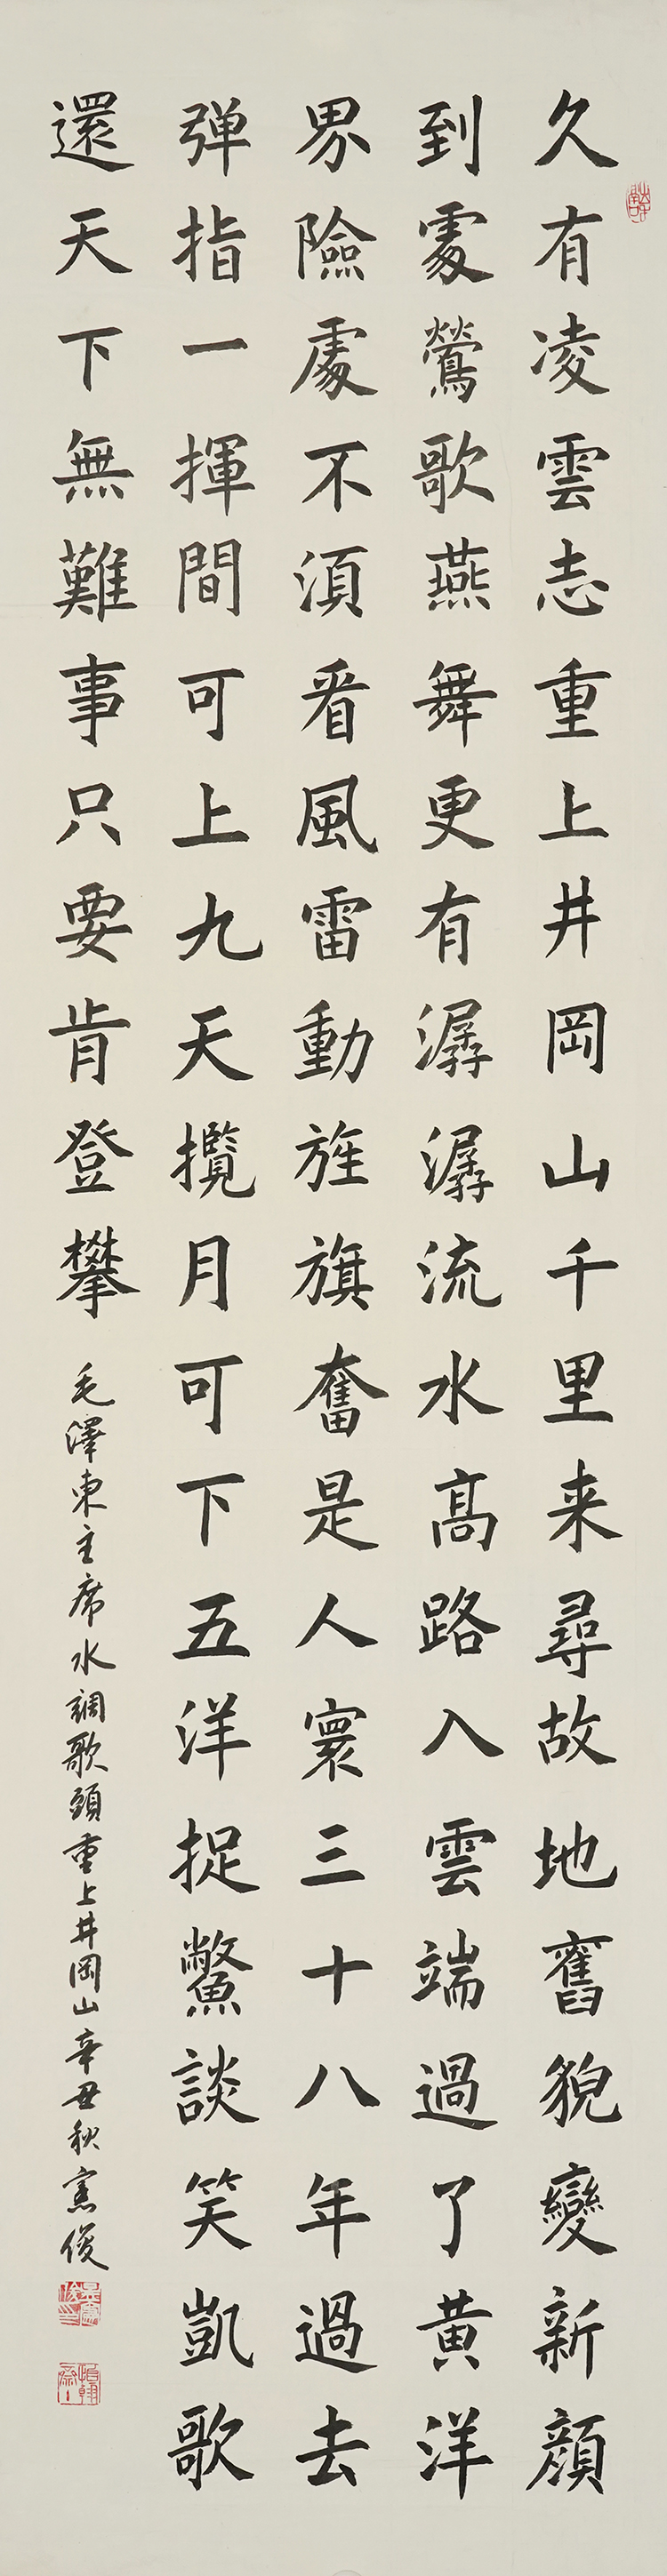 久有凌雲志重上井岡山千里来尋故地舊貌變新顔
到處鶯歌燕舞更有潺潺流水髙路入雲端過了黄洋
界險處不湏看風雷動旌旗奮是人寰三十八年過去
弹指一揮間可上九天攬月可下五洋捉鱉談笑凱歌
還天下無難事只要肯登攀
毛澤東主席水調歌頭重上井岡山辛丑秋憲俊